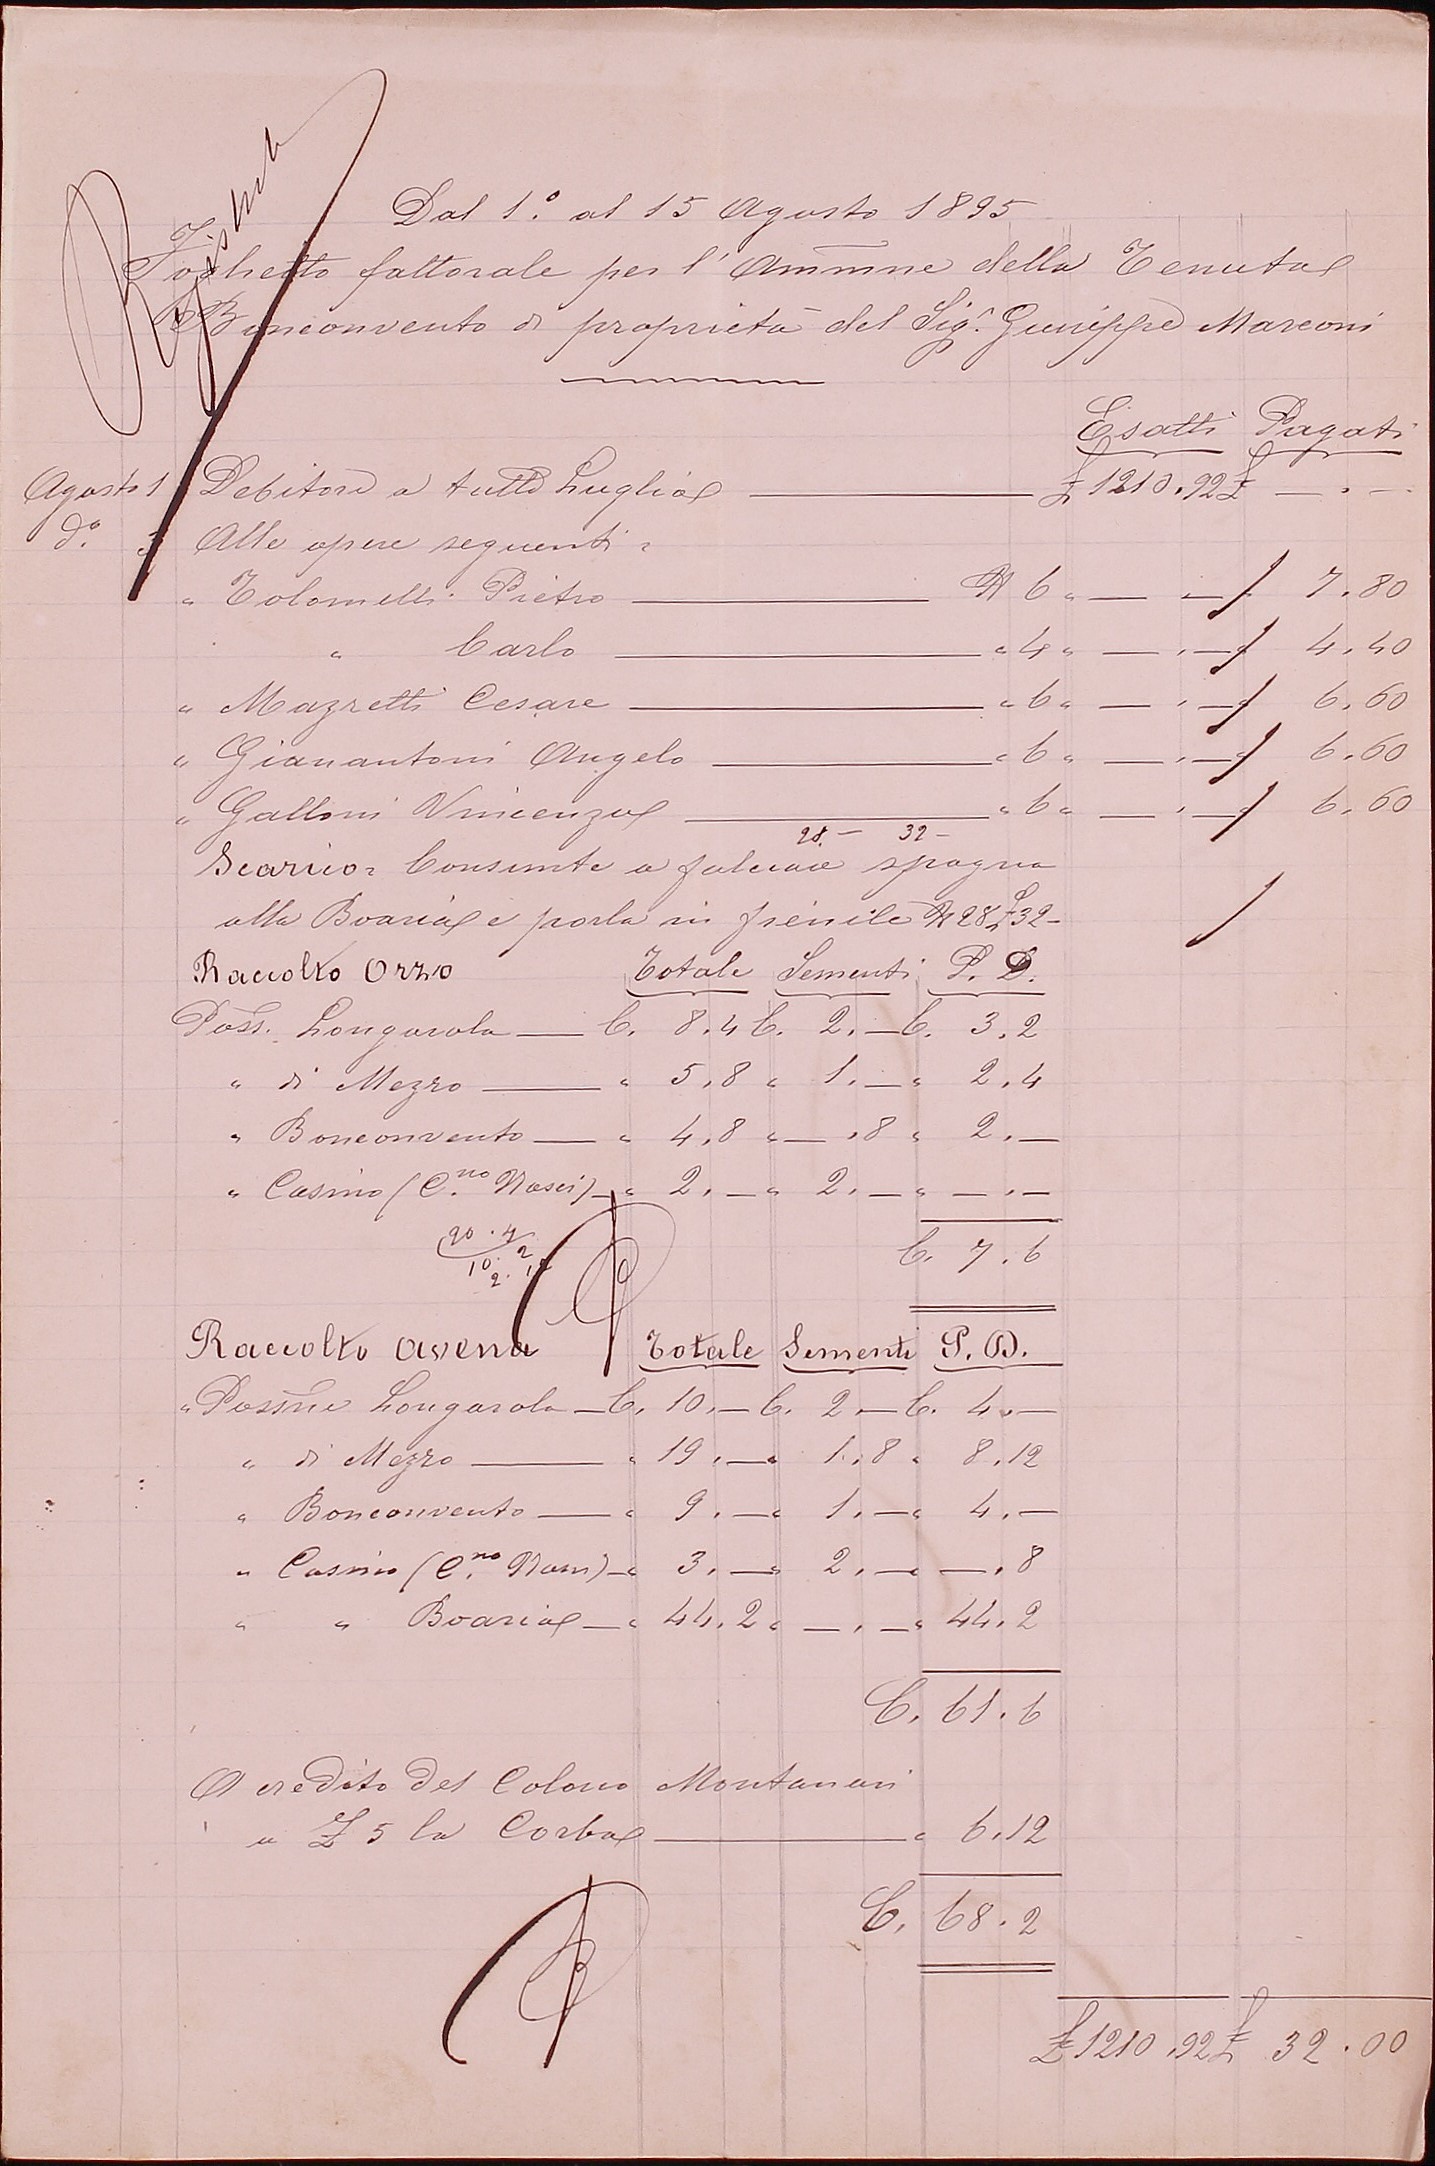 Dal 1.º al 15 Agosto 1895
Foglietto fattorale per l'Ammne della Tenuta
Bonconvento di proprietà del Sigr. Giuseppe Marconi
Esatti Pagati
Agosto 1 Debitore a tutto Luglio £ 1210.92 £ — . —
dº. 3 Alle opere seguenti =
" Tolomelli Pietro N 6 " — . — 7.80
" Carlo " 4 " — . — 4.40
" Mazzetti Cesare " 6 " — . — 6.60
" Gianantoni Angelo " 6 " — . — 6.60
" Galloni Vincenzo " 6 " — . — 6.60
28. — 32 —
Scarico = Consunte a falciare spagna
alla Boaria e porla in fienile N 28 £ 32 —
Raccolto Orzo Totale Sementi P. D.
Poss. Longarola — C. 8.4 C. 2. — C. 3.2
" di Mezzo — " 5.8 " 1. — " 2.4
" Bonconvento — " 4.8 " — .8 " 2. —
" Casino (C.no Nasci) — " 2. — " 2. — " — . —
20.4
10.2
2.1
C. 7.6
Raccolto Avena Totale Sementi P. D.
" Possne Longarola — C. 10. — C. 2. — C. 4. —
" di Mezzo — " 19. — " 1.8 " 8.12
" Bonconvento — " 9. — " 1. — " 4. —
" Casino (C.no Nasci) — " 3. — " 2. — " — .8
" " Boaria — " 44.2 " — . — " 44.2
C. 61.6
A credito del Colono Montanari
a £ 5 la Corba — " 6.12
C. 68.2
£ 1210.92 £ 32.00